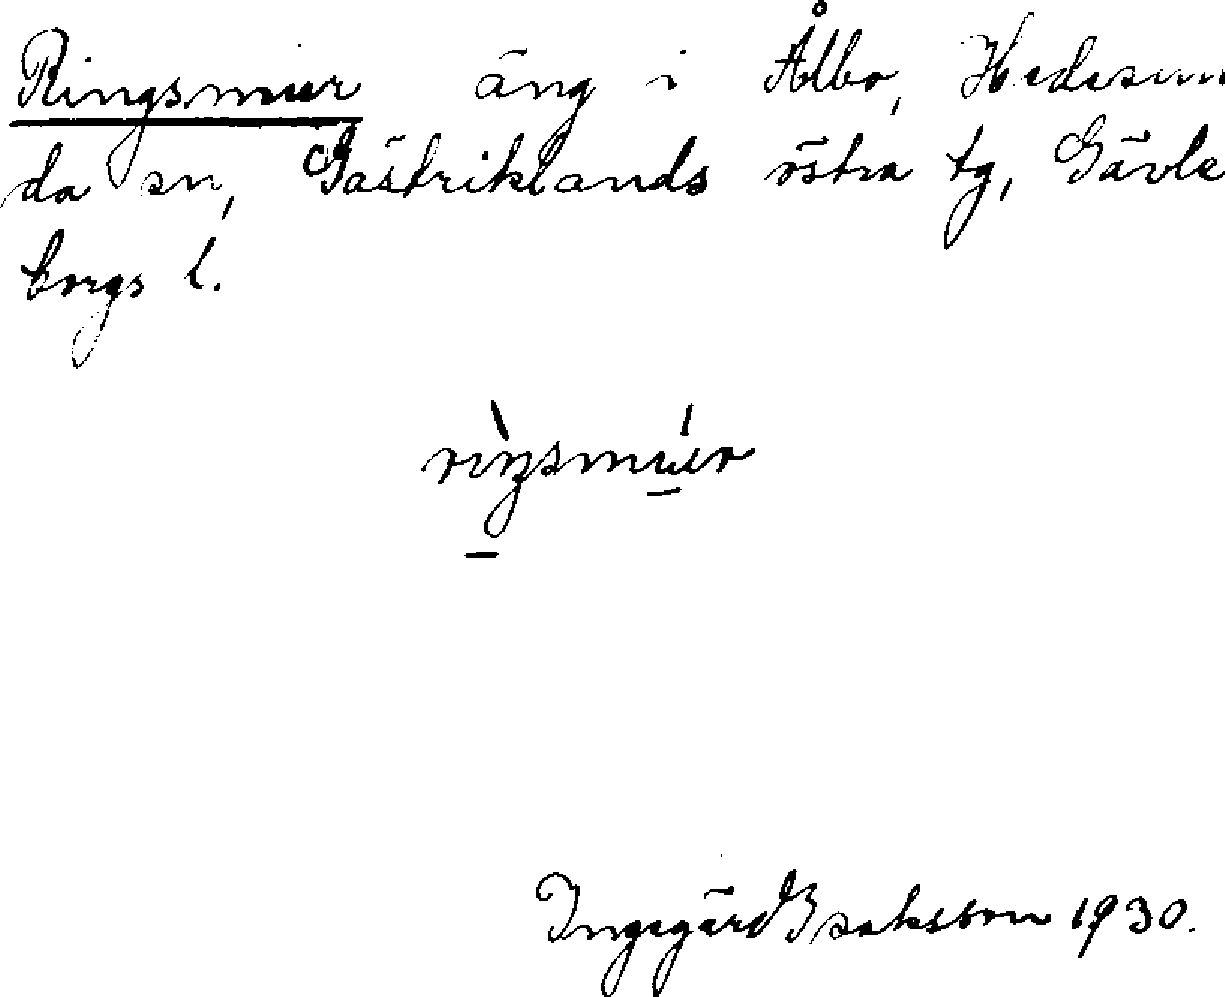 Ringsmur äng i Ålbo, Hedesun
da sn, Gästriklands östra tg, Gävle
borgs l.
rìŋsmúr
Ingegärd Isaksson 1930.